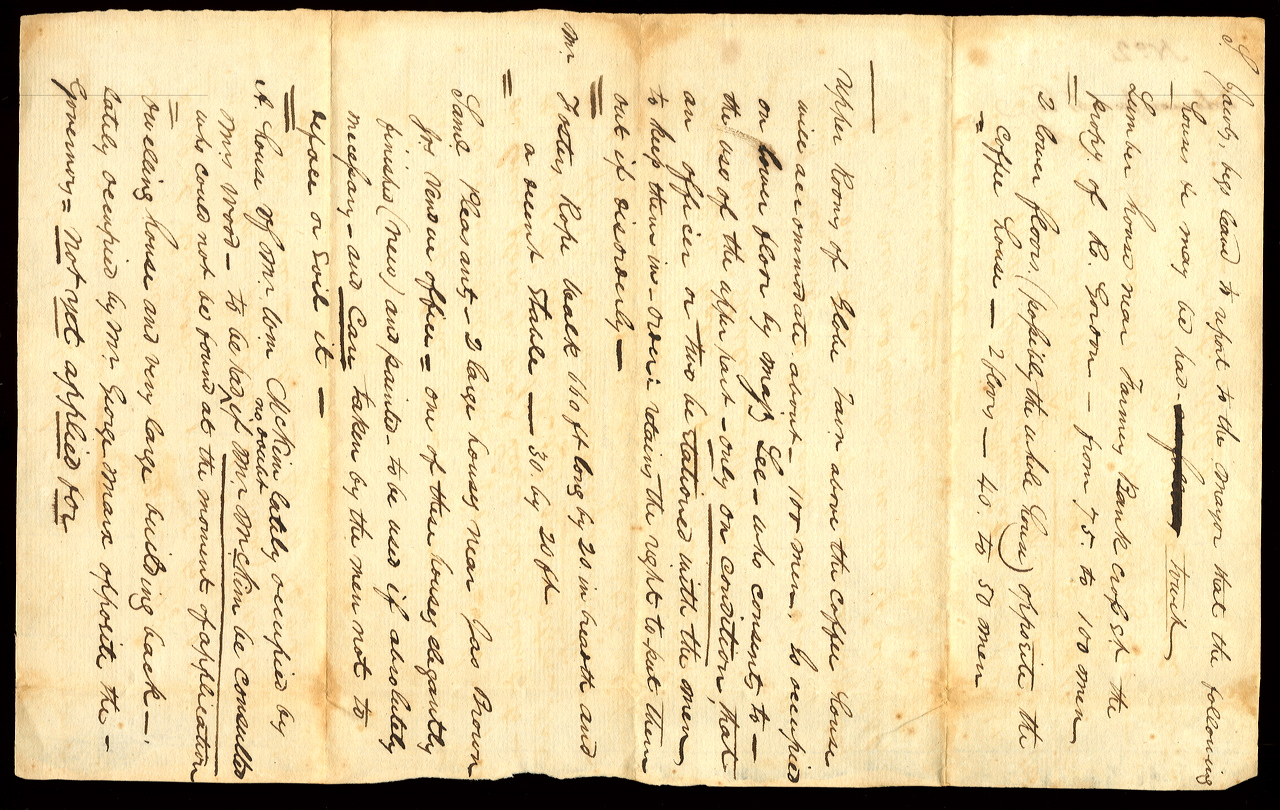 S. Jacobs, begs leave to report to the Mayor that the following
houses &c may be had - towit
Lumber house near Farmers Bank cross st the
propy. of R. Gordon — from 75. to 100 men
2 lower floors (possibly the whole house) opposite the
Coffee house — 2 floors — 40. to 50 men
Upper Rooms of Globe Tavn above the Coffee house
will accommodate about - 100 men is occupied
on lower floor by Majr Lee - who consents to —
the use of the upper part - only on condition, that
an officer or two be stationed with the men
to keep them in - order: retaing the right to put them
out if disorderly —
Mr Fosters Rope Walk 1160 ft long by 20 in breadth and
a decent Stable — 30 by 20 ft
Saml Pleasants - 2 large houses near Jas Brown
Jr. Vendue office = one of these houses elegantly
finished (new) and painted - to be used if absolutely
necessary - and Care taken by the men not to
deface or soil it —
A house of Mr. Wm McKim lately occupied by
Mrs Wood - to be had no doubt if Mr McKim be consulted
who could not be found at the moment of application
Dwelling house and very large building back —
lately occupied by Mr George Marx opposite the -
Governors = Not yet applied for
No 2